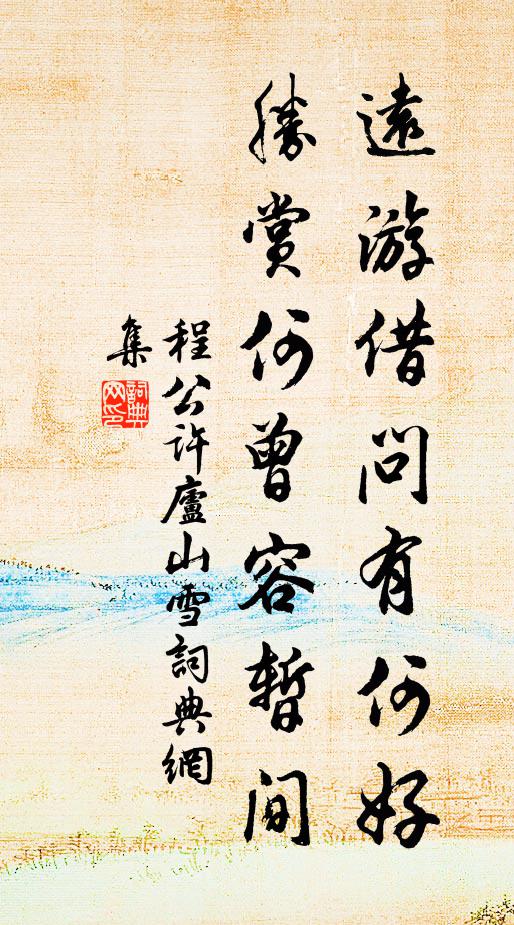 遠游借問有何好
勝賞何曾容暫間
程公許廬山雪詞典網
集
詞典網印